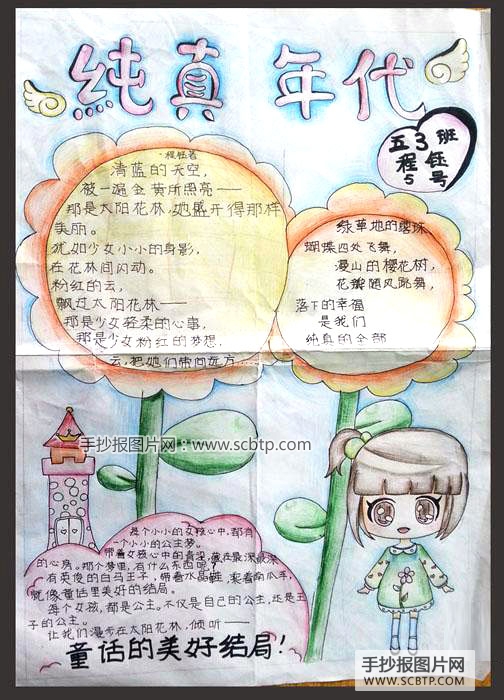 纯真年代
五3班
程钰
5号
程钰著
清蓝的天空,
被一遍金黄所照亮——
那是太阳花林,她盛开得那样
美丽。
犹如少女小小的身影,
在花林间闪动。
粉红的云,
飘过太阳花林——
那是少女轻柔的心事,
那是少女粉红的梦想,
云,把她们带向远方
绿草地的露珠
蝴蝶四处飞舞,
漫山的樱花树,
花瓣随风跳舞,
落下的幸福
是我们
纯真的全部
手抄报图片网:www.scbtp.com
每个小小的女孩心中,都有
一个小小的公主梦。
带着女孩心中的青涩,藏在最深最深
的心房。那个梦里,有什么东西呢?
有英俊的白马王子,带着水晶鞋,乘着南瓜车,
就像童话里美好的结局。
每个女孩,都是公主。不仅是自己的公主,还是王
子的公主。
让我们漫步在太阳花林,倾听——
童话的美好结局!
手抄报图片网
WWW.SCBTP.COM